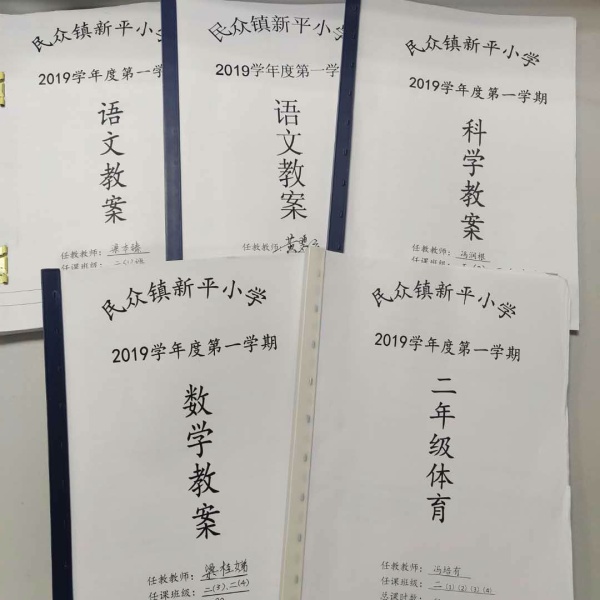 民众镇新平小学
2019学年度第一学
语文教案
任教教师：
任课班级：
民众镇新平小学
2019学年度第一学
语文教案
任教教师：
民众镇新平小学
2019学年度第一学期
科学教案
任教教师：冯润根
任课班级：
民众镇新平小学
2019学年度第一学期
数学教案
任教教师：梁桂娣
任课班级：二(3)、二(4)
民众镇新平小学
2019学年度第一学期
二年级体育
任教教师：冯培有
任课班级：二(1)(2)(3)(4)
总课时数：